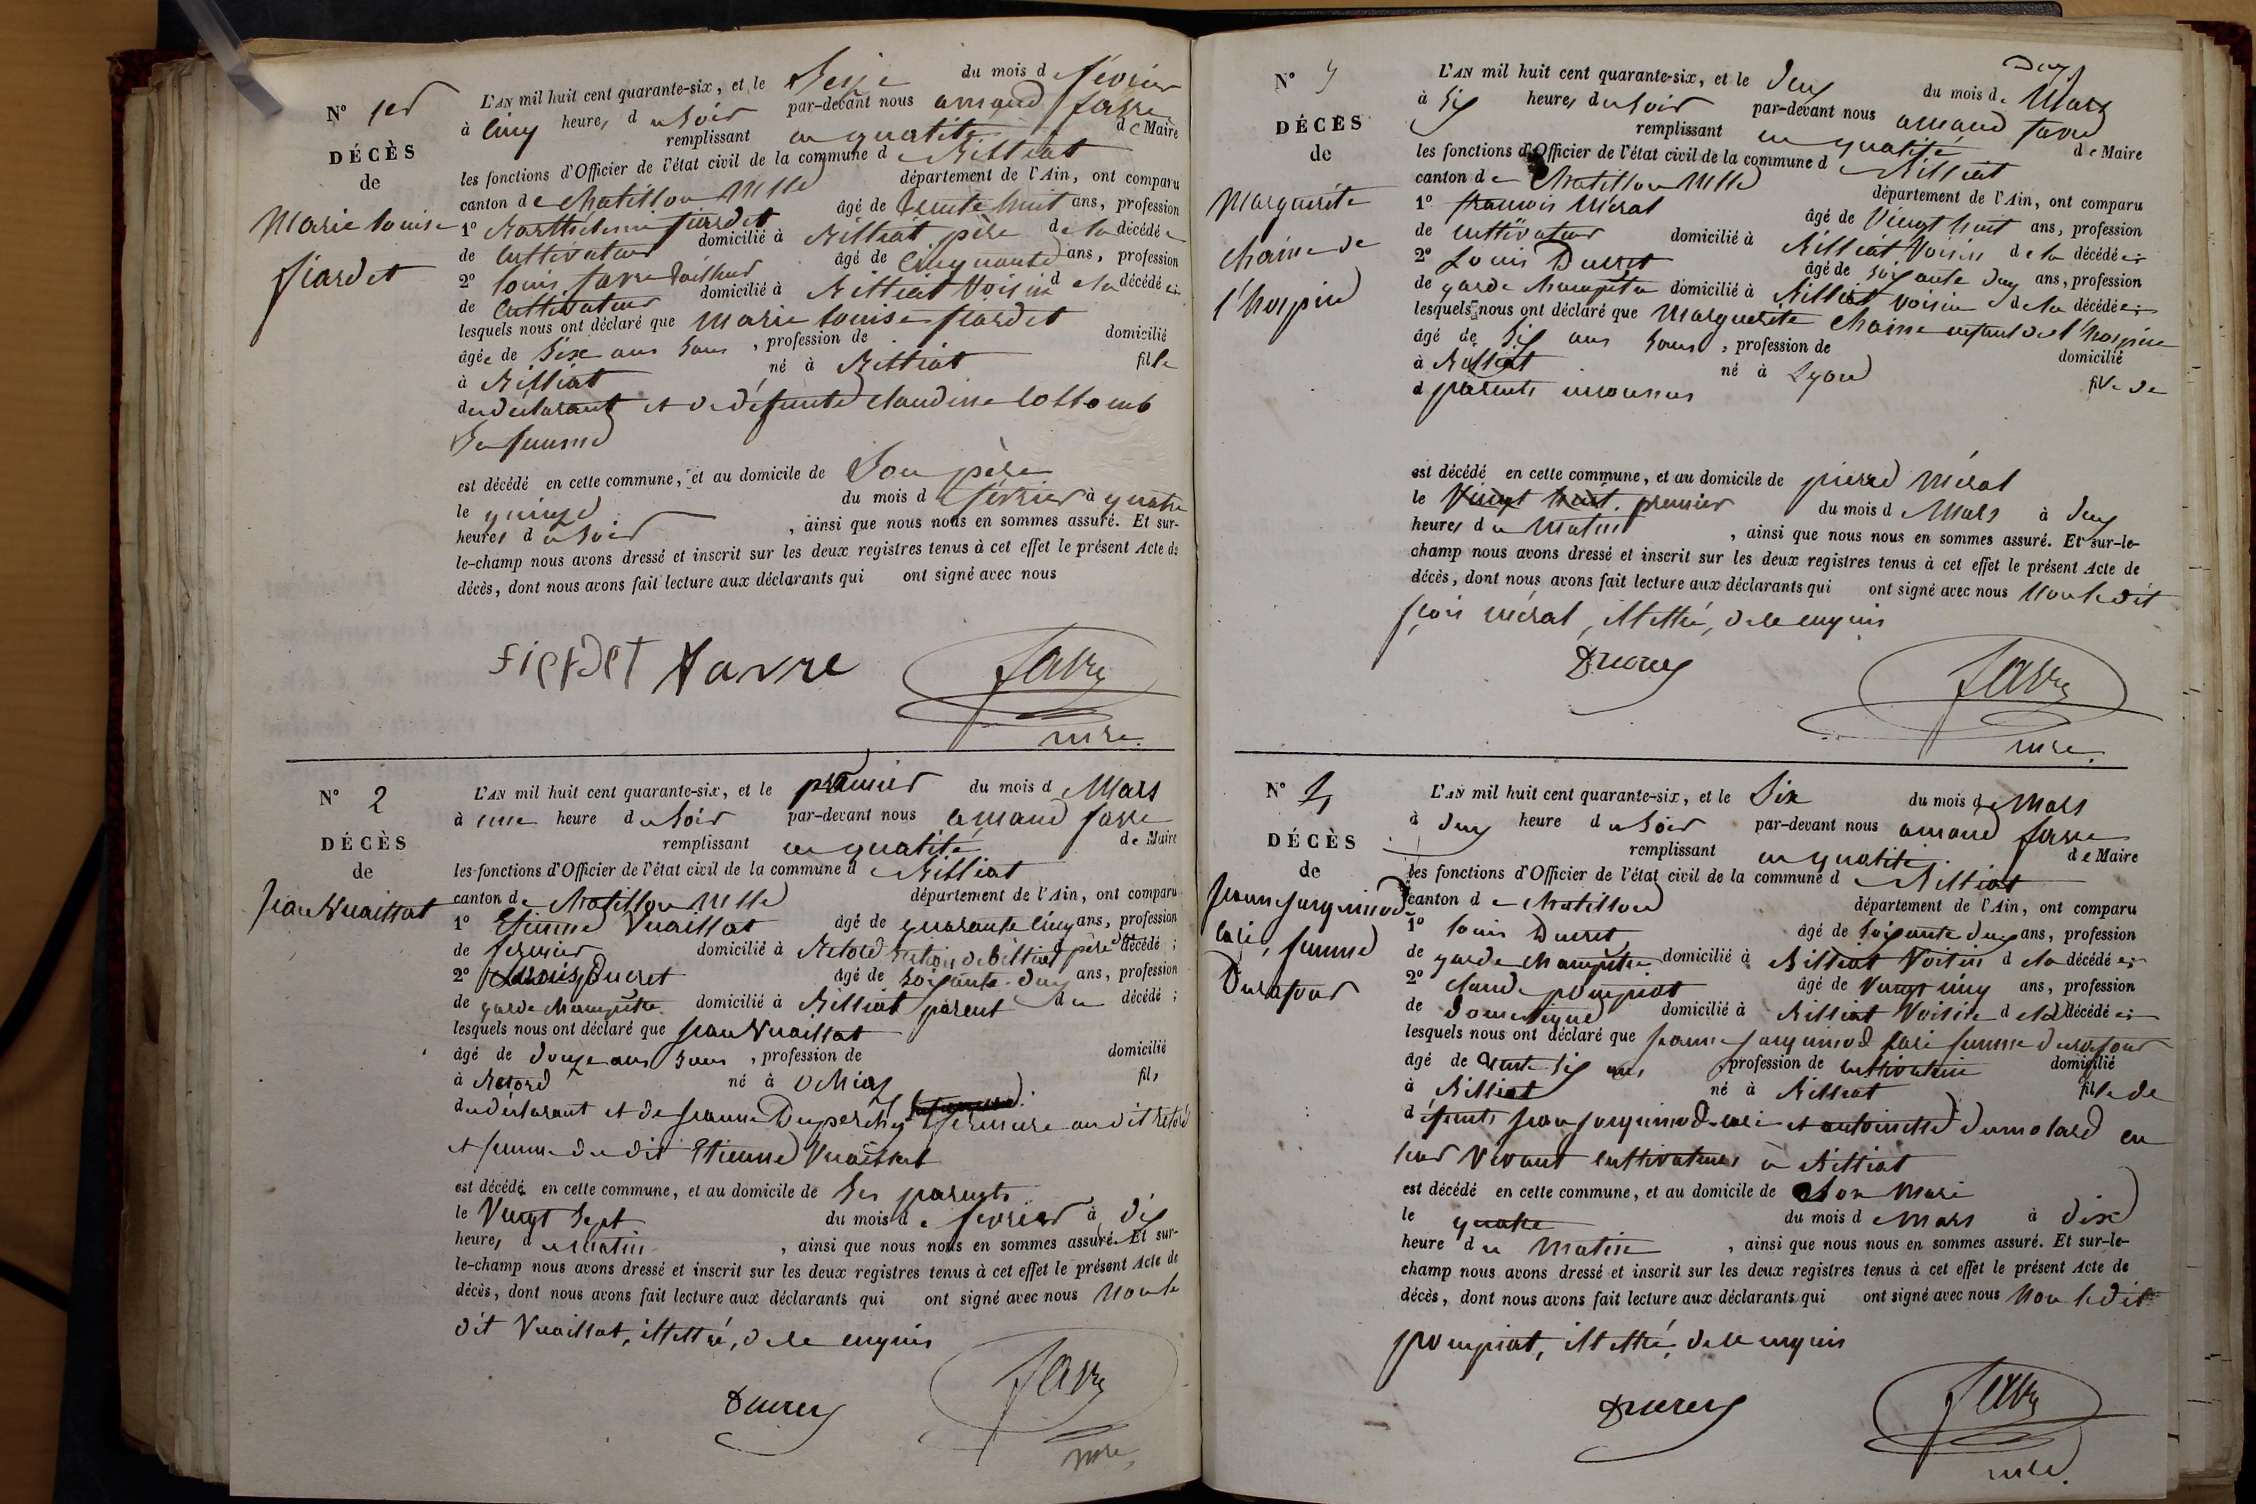 N° 1er
DÉCÈS
de
Marie Louise
fiardet
L'AN mil huit cent quarante-six, et le Seize du mois d février
à cinq heures du Soir par-devant nous amand favre
remplissant en qualité de Maire
les fonctions d'Officier de l'état civil de la commune de Billiat
canton de Chatillon Mlle département de l'Ain, ont comparu
1° Barthélemi fiardet âgé de trente huit ans, profession
de Cultivateur domicilié à Billiat père de la décédée
2° Louis favre âgé de Cinquante ans, profession
de Cultivateur domicilié à Billiat Voisin de la décédée;
lesquels nous ont déclaré que Marie Louise fiardet
âgée de Six ans Sans , profession de domicilié
à Billiat né à Billiat fille
du déclarant et de défunte Claudine Collomb
Sa femme
est décédé en cette commune, et au domicile de Son père
le quinze du mois de février à quatre
heures du Soir , ainsi que nous nous en sommes assuré. Et sur-
le-champ nous avons dressé et inscrit sur les deux registres tenus à cet effet le présent Acte de
décès, dont nous avons fait lecture aux déclarants qui ont signé avec nous
fierdet favre favre
mre.
N° 2
DÉCÈS
de
Jean Vuaillat
L'AN mil huit cent quarante-six, et le premier du mois de Mars
à une heure du Soir par-devant nous amand favre
remplissant en qualité de Maire
les fonctions d'Officier de l'état civil de la commune de Billiat
canton de Chatillon Mlle département de l'Ain, ont comparu
1° Etienne Vuaillat âgé de quarante cinq ans, profession
de fermier domicilié à Retord section de Billiat père du décédé;
2° Louis Ducret âgé de soixante deux ans, profession
de garde champêtre domicilié à Billiat parent du décédé;
lesquels nous ont déclaré que Jean Vuaillat
âgé de douze ans Sans , profession de domicilié
à Retord né à Ochiaz fils
du déclarant et de Jeanne Duperchy fermière au dit retord
et femme du dit Etienne Vuaillat
est décédé en cette commune, et au domicile de Ses parents
le Vingt Sept du mois de février à dix
heures du matin , ainsi que nous nous en sommes assuré. Et sur-
le-champ nous avons dressé et inscrit sur les deux registres tenus à cet effet le présent Acte de
décès, dont nous avons fait lecture aux déclarants qui ont signé avec nous Non le
dit Vuaillat, illettré, de ce enquis
Ducret favre
mre.
N° 3
DÉCÈS
de
Marguerite
Chaine de
l'hospice
L'AN mil huit cent quarante-six, et le deux du mois de Mars
à Six heures du Soir par-devant nous amand favre
remplissant en qualité de Maire
les fonctions d'Officier de l'état civil de la commune de Billiat
canton de Chatillon Mlle département de l'Ain, ont comparu
1° francois Mérat âgé de Vingt huit ans, profession
de Cultivateur domicilié à Billiat Voisin de la décédée;
2° Louis Ducret âgé de soixante deux ans, profession
de garde champêtre domicilié à Billiat voisin de la décédée;
lesquels nous ont déclaré que Marguerite Chaine enfant de l'hospice
âgé de Six ans Sans , profession de domicilié
à Billiat né à Lyon fille de
d parents inconnus
est décédé en cette commune, et au domicile de pierre Mérat
le Vingt huit premier du mois de Mars à deux
heures du Matin , ainsi que nous nous en sommes assuré. Et sur-le-
champ nous avons dressé et inscrit sur les deux registres tenus à cet effet le présent Acte de
décès, dont nous avons fait lecture aux déclarants qui ont signé avec nous Non le dit
fçois Mérat, illettré, de ce enquis
Ducret favre
mre.
N° 4
DÉCÈS
de
Jeanne Juquinod
Cari, femme
Durafour
L'AN mil huit cent quarante-six, et le Six du mois de Mars
à deux heure du Soir par-devant nous amand favre
remplissant en qualité de Maire
les fonctions d'Officier de l'état civil de la commune de Billiat
canton de Chatillon département de l'Ain, ont comparu
1° Louis Ducret âgé de soixante deux ans, profession
de garde champêtre domicilié à Billiat Voisin de la décédée;
2° Claude pompiat âgé de Vingt cinq ans, profession
de Domestique domicilié à Billiat Voisin de la décédée;
lesquels nous ont déclaré que Jeanne Juquinod Cari femme Durafour
âgé de trente Six ans , profession de cultivatrice domicilié
à Billiat né à Billiat fille de
défunts Jean Juquinod Cari et antoinette Dumolard en
leur Vivant cultivateurs à Billiat
est décédé en cette commune, et au domicile de Son Mari
le quatre du mois de Mars à dix
heure du Matin , ainsi que nous nous en sommes assuré. Et sur-le-
champ nous avons dressé et inscrit sur les deux registres tenus à cet effet le présent Acte de
décès, dont nous avons fait lecture aux déclarants qui ont signé avec nous Non le dit
pompiat, illettré, de ce enquis
Ducret favre
mre.